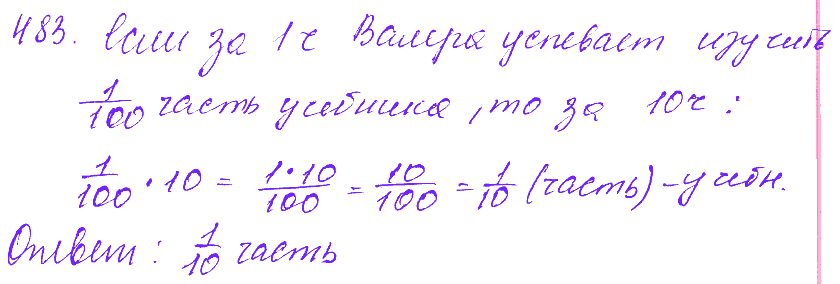 483. Если за 1 ч Валера успевает изучить
1/100 часть учебника, то за 10ч:
1/100 · 10 = 1·10/100 = 10/100 = 1/10 (часть) – учебн.
Ответ: 1/10 часть